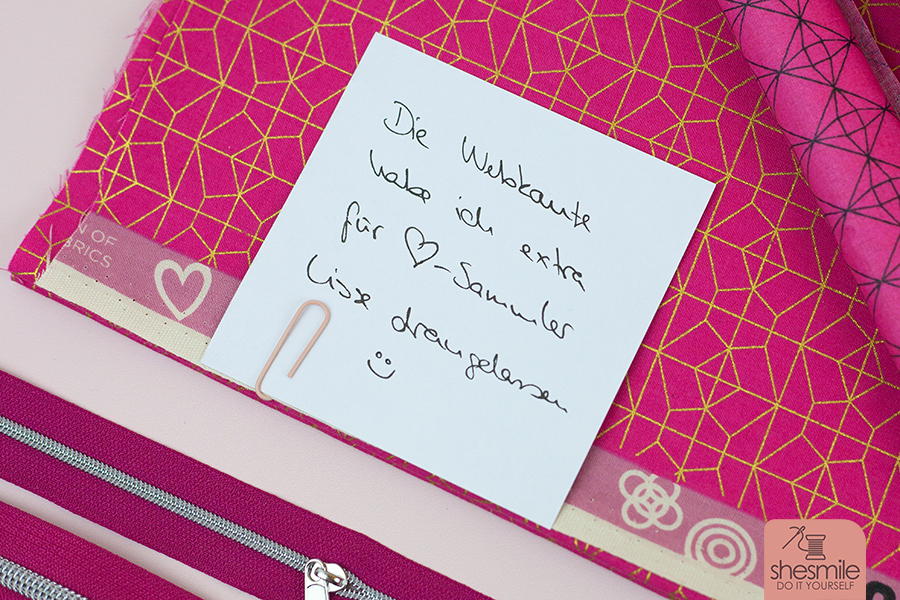 Die Webkante
habe ich extra
für ♡-Sammler
Lisse drangelassen
N OF
BRICS
shesmile
DO IT YOURSELF